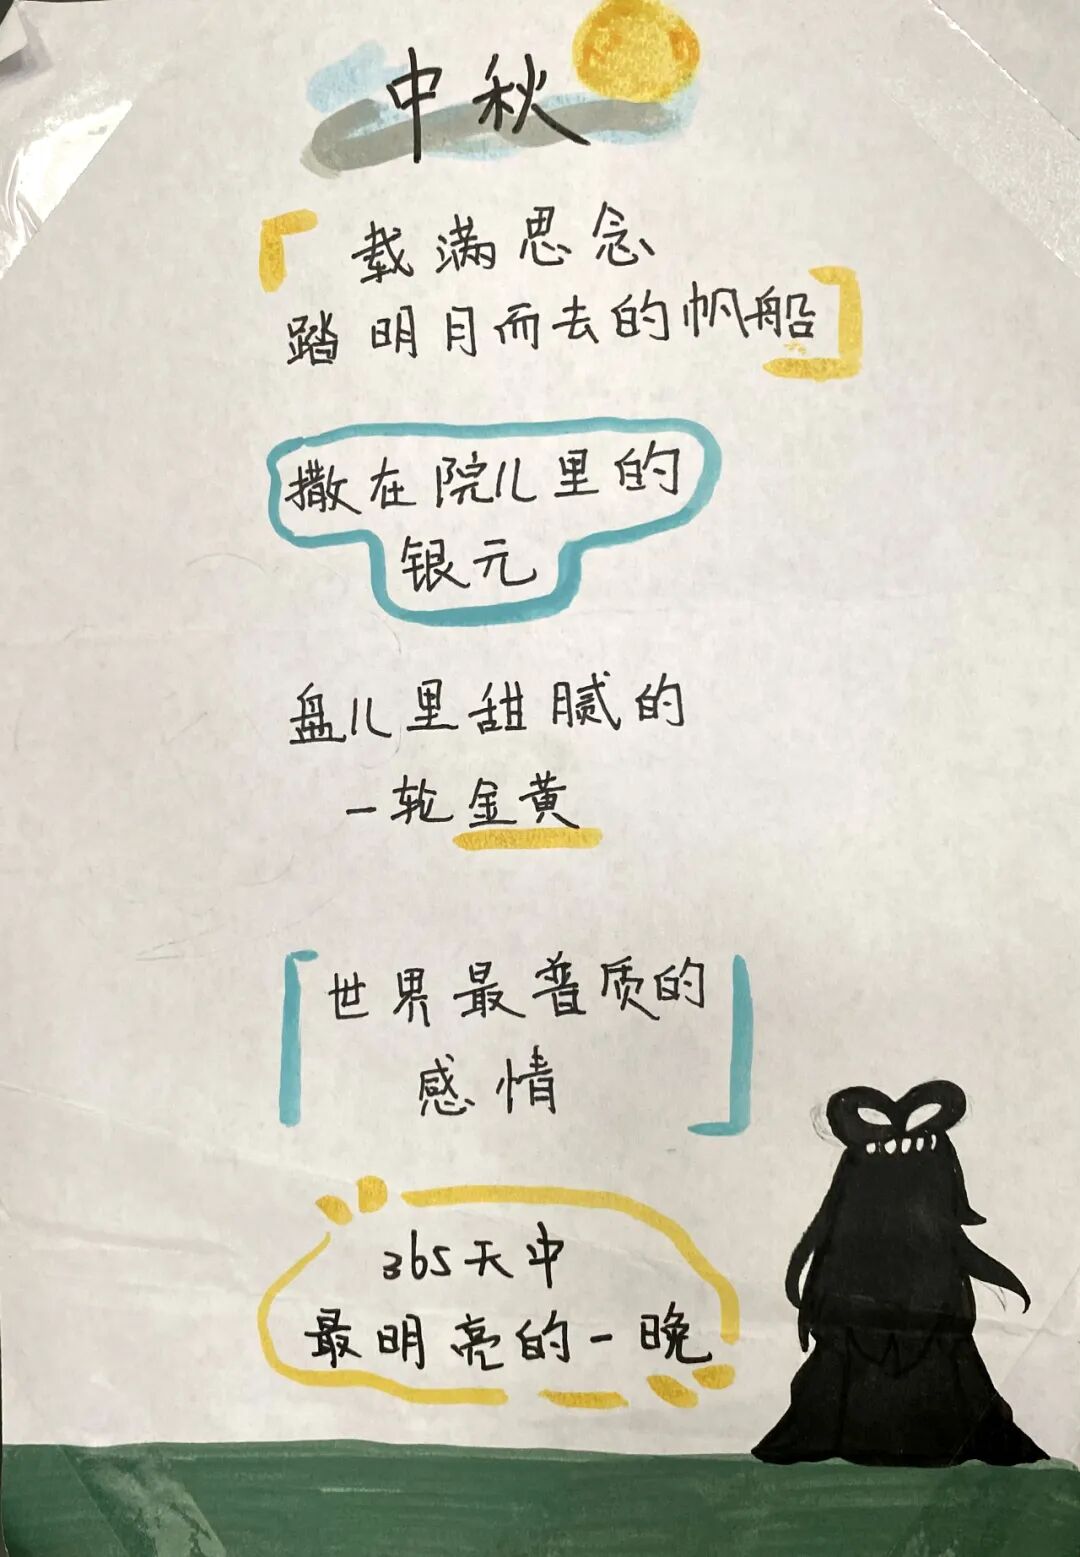 中秋
载满思念
踏明月而去的帆船
撒在院儿里的
银元
盘儿里甜腻的
一轮金黄
世界最普质的
感情
365天中
最明亮的一晚